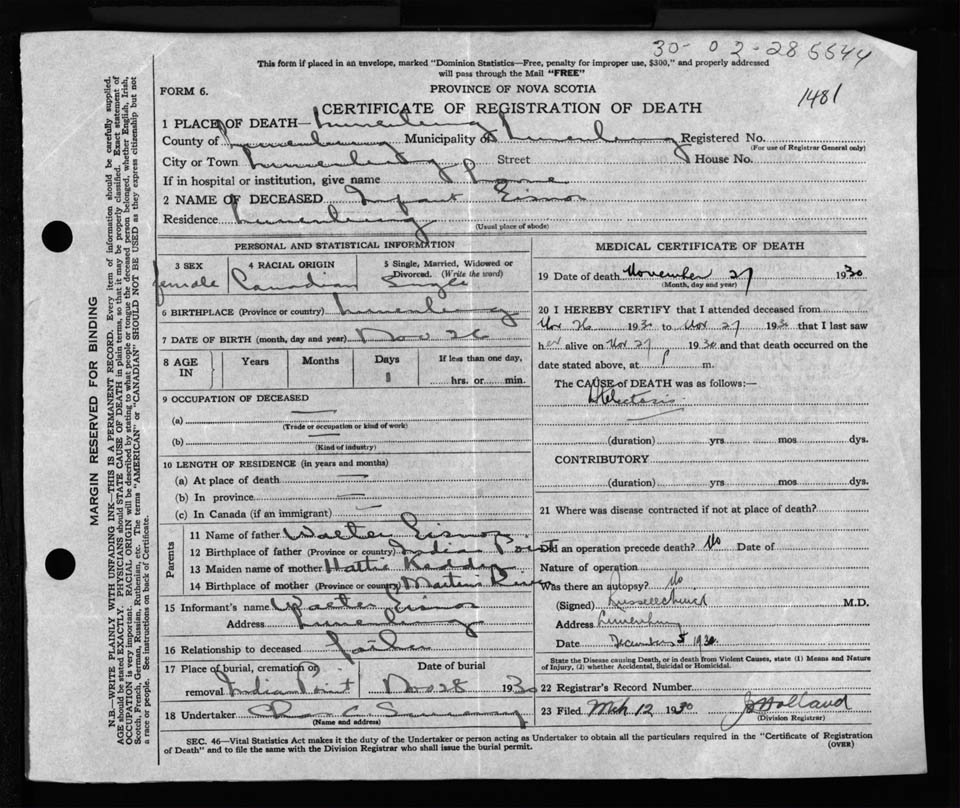 30-02-285544
This form if placed in an envelope, marked "Dominion Statistics—Free, penalty for improper use, $300," and properly addressed
will pass through the Mail "FREE"
FORM 6.
PROVINCE OF NOVA SCOTIA
1481
CERTIFICATE OF REGISTRATION OF DEATH
1 PLACE OF DEATH— Lunenburg
County of Lunenburg Municipality of Lunenburg Registered No.
(For use of Registrar General only)
City or Town Lunenburg Street House No.
If in hospital or institution, give name
2 NAME OF DECEASED Infant Eisnor
Residence Lunenburg
(Usual place of abode)
PERSONAL AND STATISTICAL INFORMATION
3 SEX 4 RACIAL ORIGIN 5 Single, Married, Widowed or
Divorced. (Write the word)
female Canadian Single
6 BIRTHPLACE (Province or country) Lunenburg
7 DATE OF BIRTH (month, day and year) Nov 26
8 AGE IN Years Months Days If less than one day,
1 hrs. or min.
9 OCCUPATION OF DECEASED
(a)
(Trade or occupation or kind of work)
(b)
(Kind of industry)
10 LENGTH OF RESIDENCE (in years and months)
(a) At place of death
(b) In province
(c) In Canada (if an immigrant)
Parents
11 Name of father Walter Eisnor
12 Birthplace of father (Province or country) Indian Point
13 Maiden name of mother Hattie Keddy
14 Birthplace of mother (Province or country) Martins River
15 Informant's name Walter Eisnor
Address Lunenburg
16 Relationship to deceased father
17 Place of burial, cremation or Date of burial
removal Indian Point Nov 28 1930
18 Undertaker
(Name and address)
MEDICAL CERTIFICATE OF DEATH
19 Date of death November 27 1930
(Month, day and year)
20 I HEREBY CERTIFY that I attended deceased from
Nov 26 1930 to Nov 27 1930 that I last saw
her alive on Nov 27 1930 and that death occurred on the
date stated above, at m.
The CAUSE of DEATH was as follows:—
Atelectasis
(duration) yrs mos dys.
CONTRIBUTORY
(duration) yrs. mos. dys.
21 Where was disease contracted if not at place of death?
Did an operation precede death? No Date of
Nature of operation
Was there an autopsy? No
(Signed) M.D.
Address Lunenburg
Date December 5 1930
State the Disease causing Death, or in death from Violent Causes, state (1) Means and Nature
of Injury, (2) whether Accidental, Suicidal or Homicidal.
22 Registrar's Record Number
23 Filed Mch 12 1930 Holland
(Division Registrar)
SEC. 46—Vital Statistics Act makes it the duty of the Undertaker or person acting as Undertaker to obtain all the particulars required in the "Certificate of Registration
of Death" and to file the same with the Division Registrar who shall issue the burial permit.
(OVER)
MARGIN RESERVED FOR BINDING
N.B.—WRITE PLAINLY WITH UNFADING INK—THIS IS A PERMANENT RECORD. Every item of information should be carefully supplied.
AGE should be stated EXACTLY. PHYSICIANS should STATE CAUSE OF DEATH in plain terms, so that it may be properly classified. Exact statement of
OCCUPATION is very important. RACIAL ORIGIN will be described by stating to what people or tongue the deceased person belonged, whether English, Irish,
Scotch, French, German, Russian, Ruthenian, etc. The terms "AMERICAN" or "CANADIAN" SHOULD NOT BE USED as they express citizenship but not
a race or people. See instructions on back of Certificate.